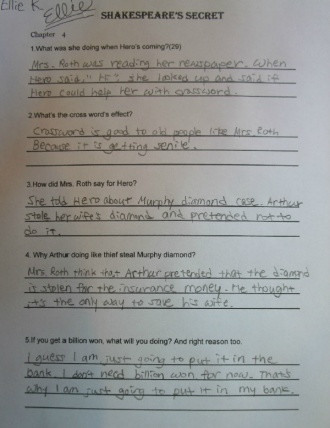 Ellie K.
Ellie
SHAKESPEARE'S SECRET
Chapter 4
1.What was she doing when Hero's coming?(29)
Mrs. Roth was reading her newspaper. When
Hero said, "Hi", she looked up and said if
Hero could help her with crossword.
2.What's the cross word's effect?
Crossword is good to old people like Mrs. Roth
Because it is getting senile.
3.How did Mrs. Roth say for Hero?
She told Hero about Murphy diamond case. Arthur
stole her wife's diamond and pretended not to
do it.
4. Why Arthur doing like thief steal Murphy diamond?
Mrs Roth think that Arthur pretended that the diamond
is stolen for the insurance money. He thought
it's the only way to save his wife.
5.If you get a billion won, what will you doing? And right reason too.
I guess I am just going to put it in the
bank. I don't need billion won for now. That's
why I am just going to put it in my bank.